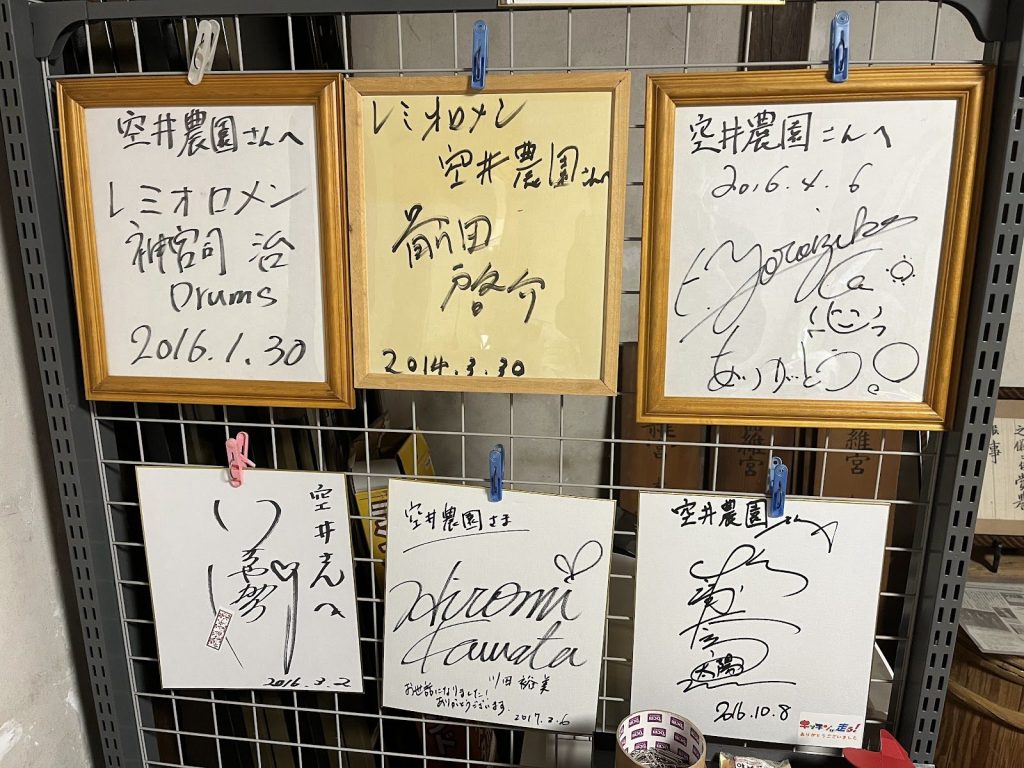 空井農園さんへ
レミオロメン
神宮司 治
Drums
2016.1.30
レミオロメン
空井農園さんへ
前田
啓介
2014.3.30
空井農園さんへ
2016.4.6
ありがとう。
空井さんへ
2016.3.2
空井農園さま
Hiromi
Kawata
川田 裕美
お世話になりました!
ありがとうございます。
2017.2.6
空井農園さんへ
太陽
2016.10.8
キッチンが走る!
ありがとうございました
羅宮
羅宮